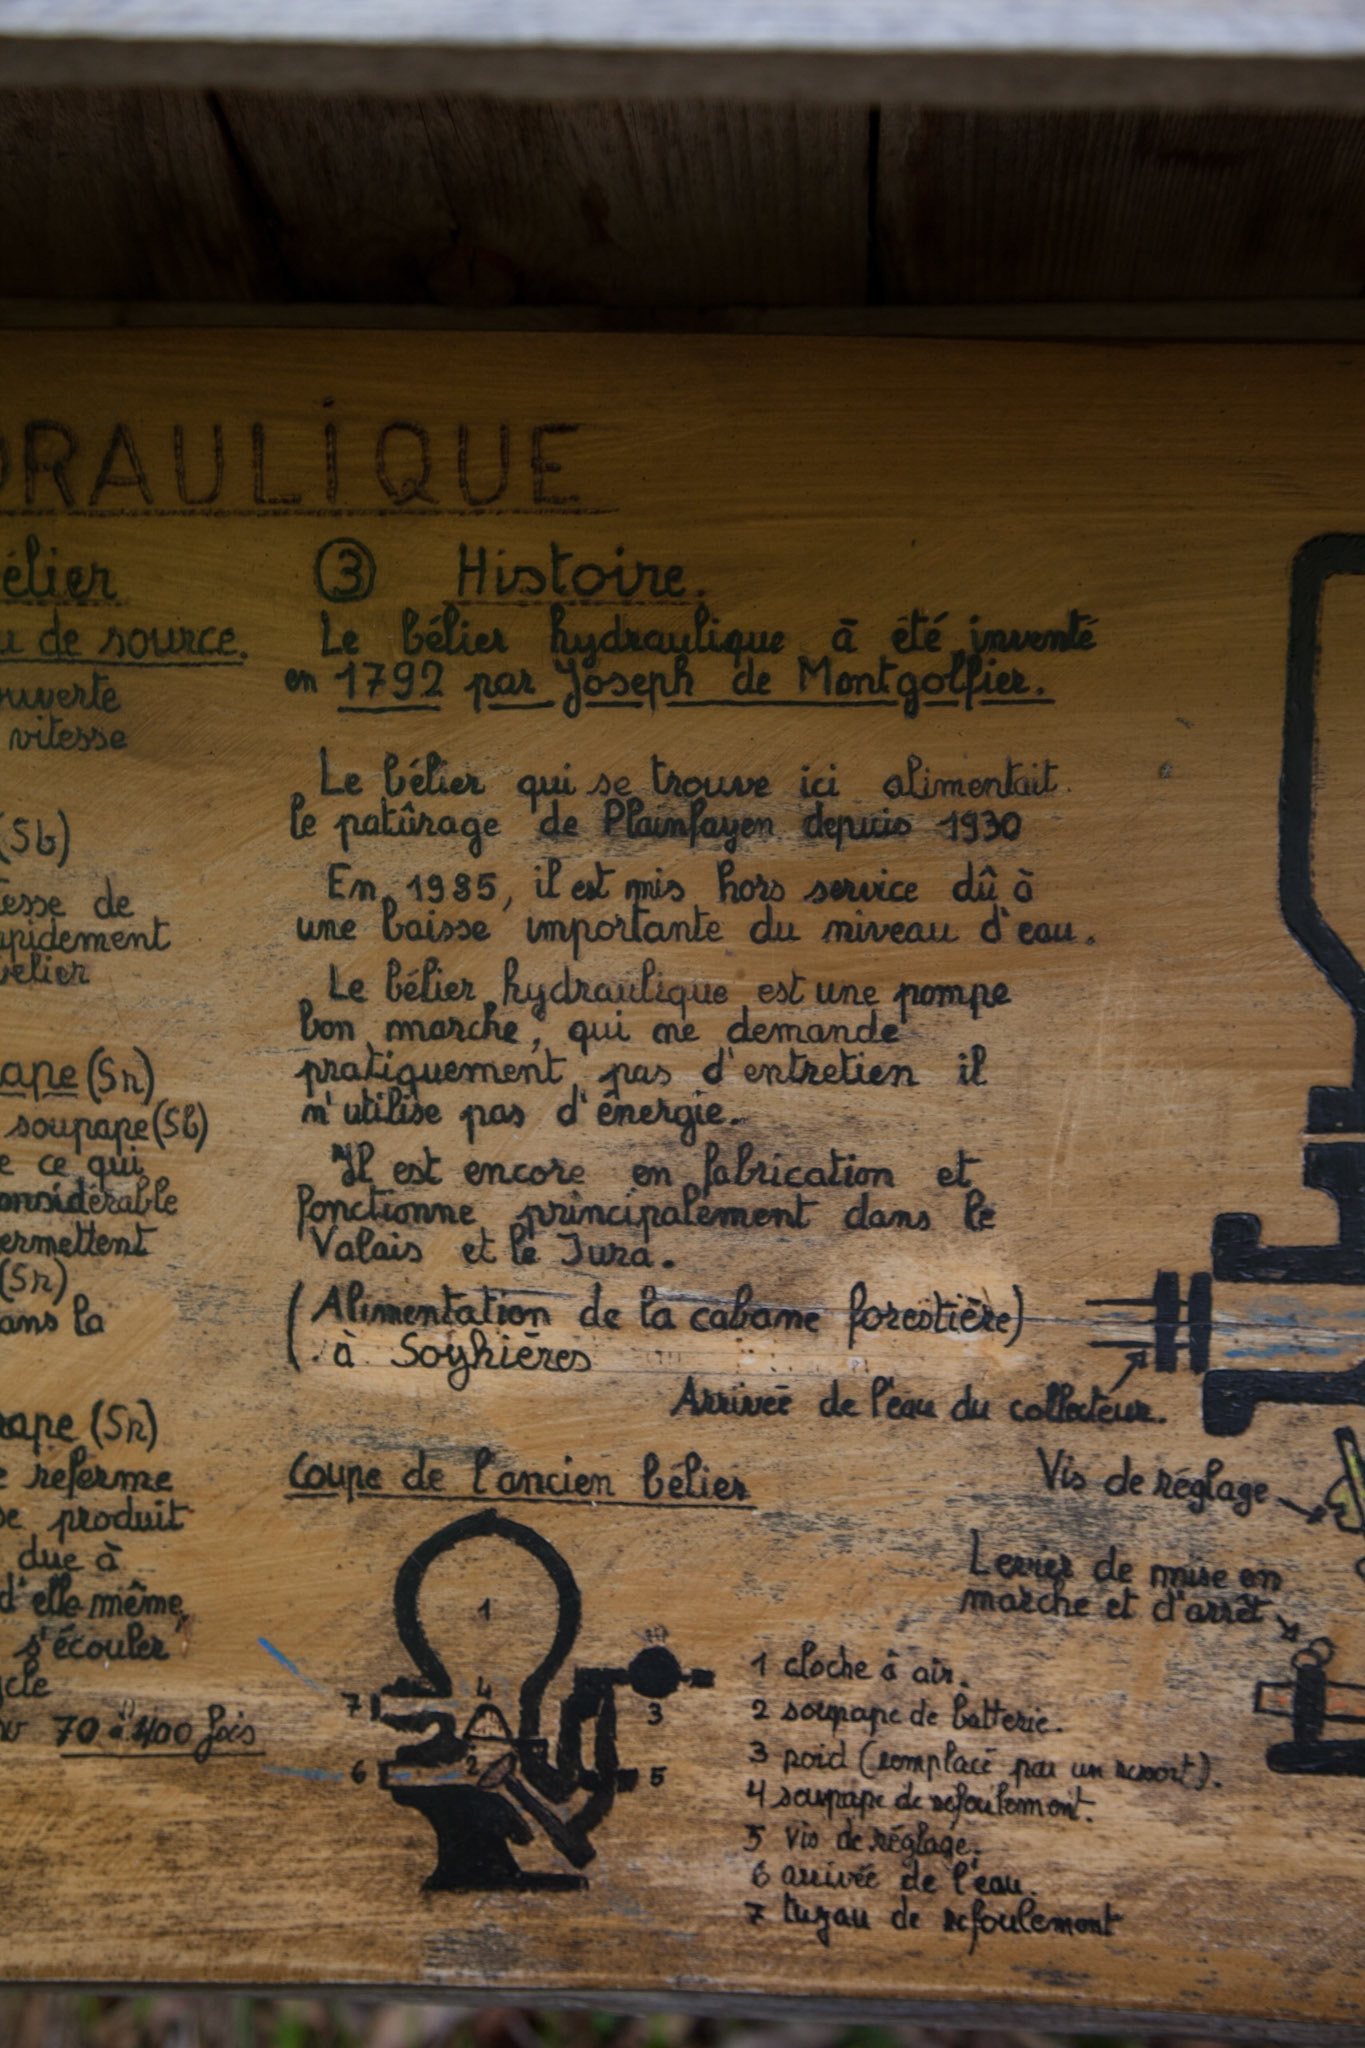 DRAULIQUE
élier
u de source.
ouverte
vitesse
(Sb)
esse de
apidement
velier
ape (Sr)
soupape (Sb)
e ce qui
onsidérable
ermettent
(Sr)
ans la
pape (Sr)
e referme
se produit
due à
d'elle même,
s'écouler
cle
70 à 100 fois
3 Histoire.
Le bélier hydraulique à été inventé
en 1792 par Joseph de Montgolfier.
Le bélier qui se trouve ici alimentait
le patûrage de Plainfayen depuis 1930
En 1985, il est mis hors service dû à
une baisse importante du niveau d'eau.
Le bélier hydraulique est une pompe
bon marche, qui ne demande
pratiquement pas d'entretien il
n'utilise pas d'énergie.
Il est encore en fabrication et
fonctionne principalement dans le
Valais et le Jura.
(Alimentation de la cabane forestière)
à Soyhières
Arrivée de l'eau du collecteur.
Vis de réglage
Levier de mise en
marche et d'arrêt
Coupe de l'ancien bélier
1
7
4
3
6
2
5
1 cloche à air.
2 soupape de batterie.
3 poid (remplacé par un ressort).
4 soupape de refoulement.
5 vis de réglage.
6 arrivée de l'eau.
7 tuyau de refoulement